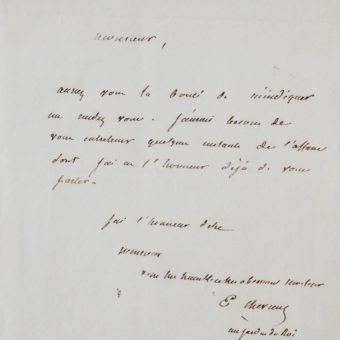 Monsieur,
aurez vous la bonté de m'indiquer
un rendez vous. J'aurais besoin de
vous entretenir quelque instants de l'affaire
dont j'ai eu l'honneur déjà de vous
parler.
J'ai l'honneur d'etre
Monsieur
votre très humble et très obeissant serviteur
E Chevreul
au jardin du Roi